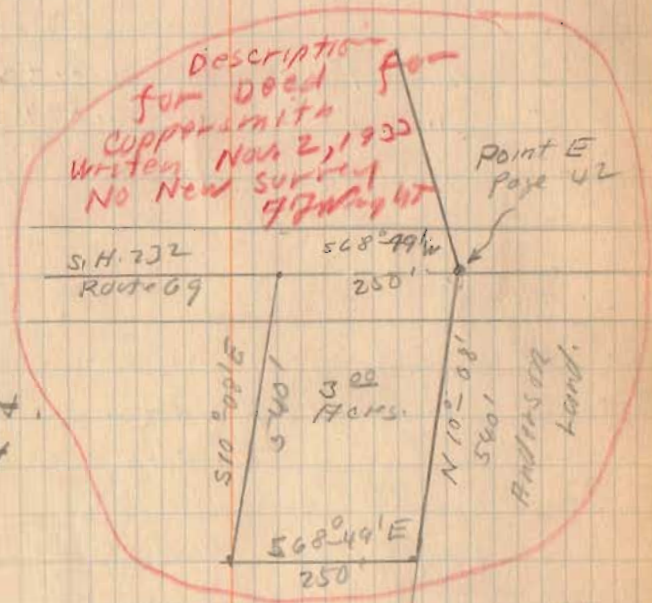 Description
for Deed for
Coppersmith
Written Nov. 2, 1933
No New Survey
Point E
Page 42
S.H. 232
Route 69
S68°-49'W
250'
S10°08'E
540'
3 00
Acres.
N10°-08'
540'
Anderson
Land.
S68°-49'E
250'